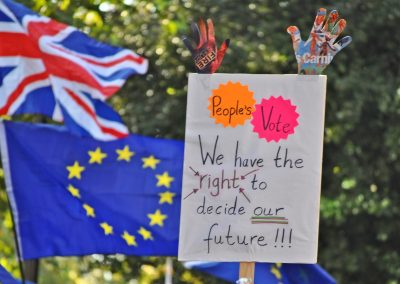 People's
Vote
We have the
right to
decide our
future !!!